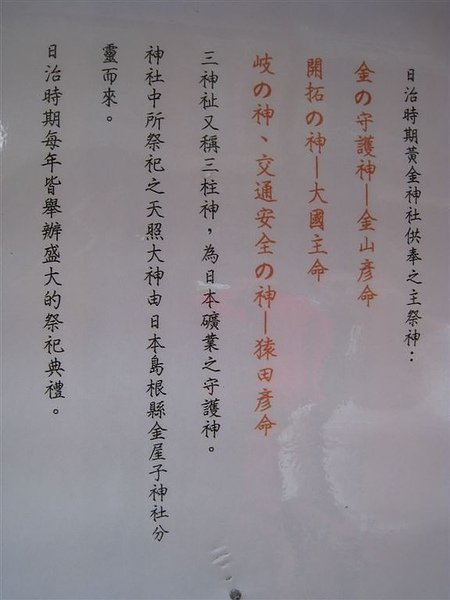 日治時期黃金神社供奉之主祭神：
金の守護神—金山彥命
開拓の神—大國主命
岐の神、交通安全の神—猿田彥命
三神祉又稱三柱神，為日本礦業之守護神。
神社中所祭祀之天照大神由日本島根縣金屋子神社分
靈而來。
日治時期每年皆舉辦盛大的祭祀典禮。